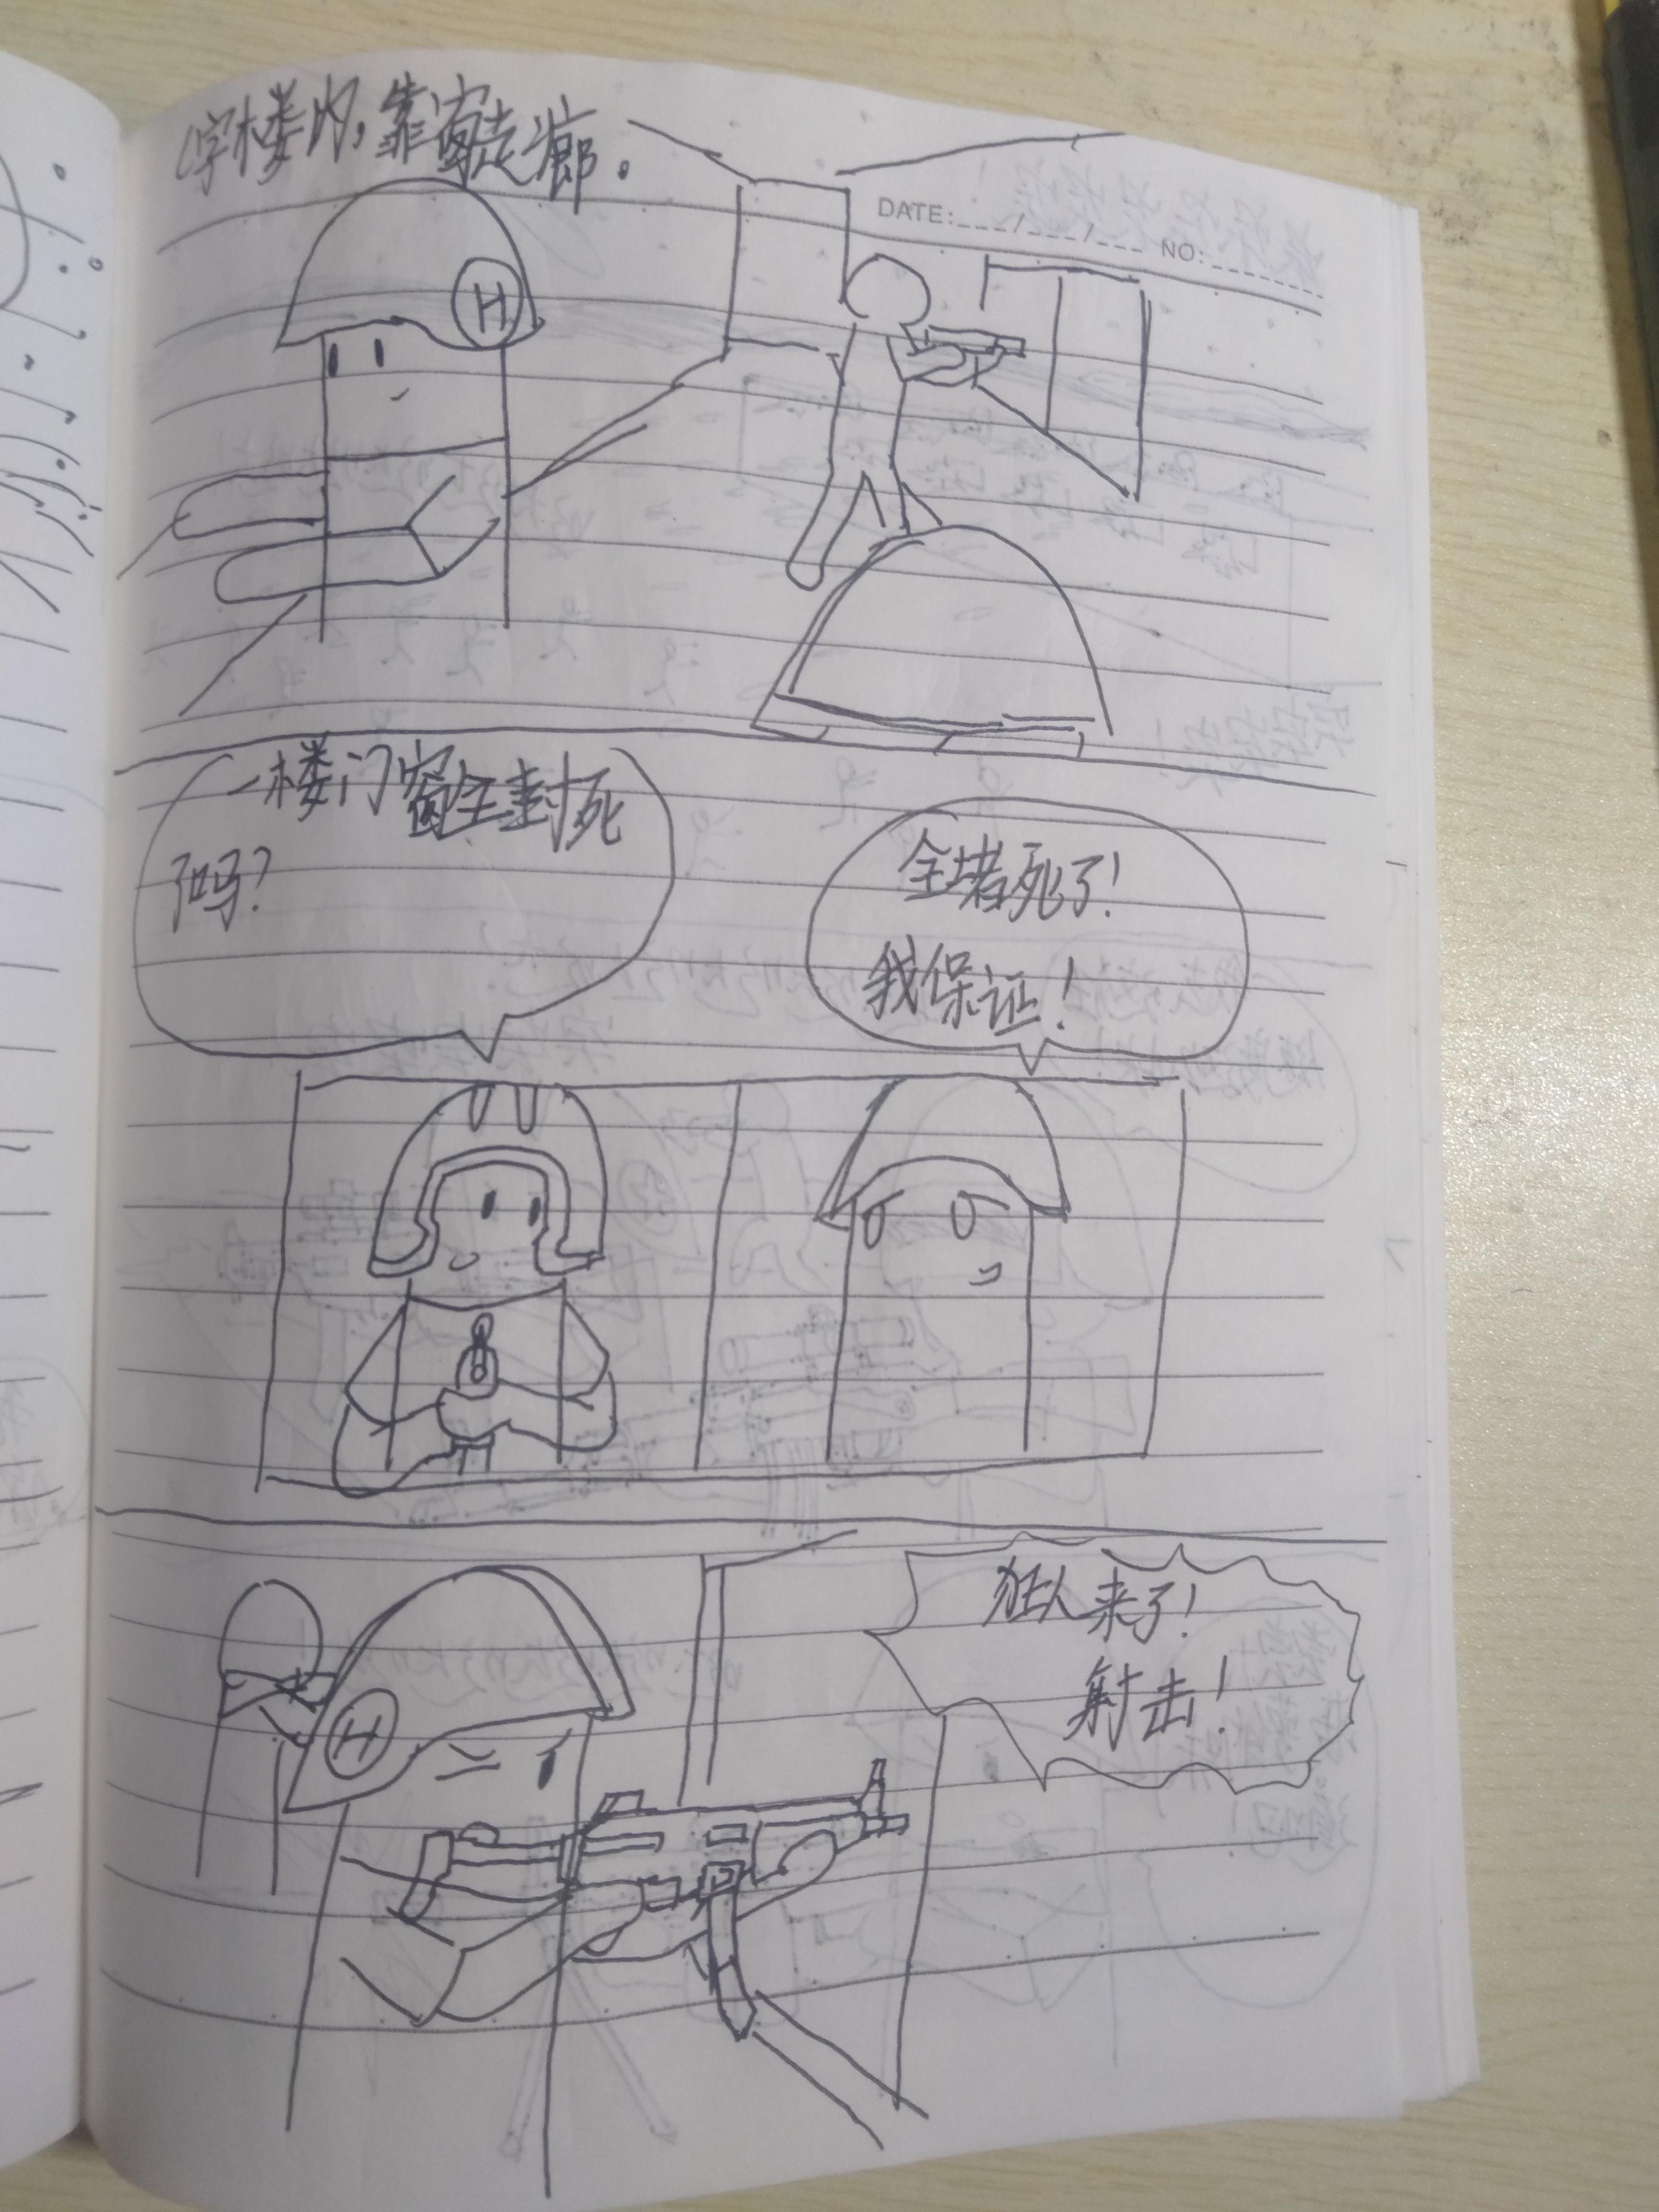 字楼内,靠窗走廊。
DATE:___/___/___ NO:______
H
一楼门窗全封死
了吗?
全堵死了!
我保证!
狂人来了!
射击!
H